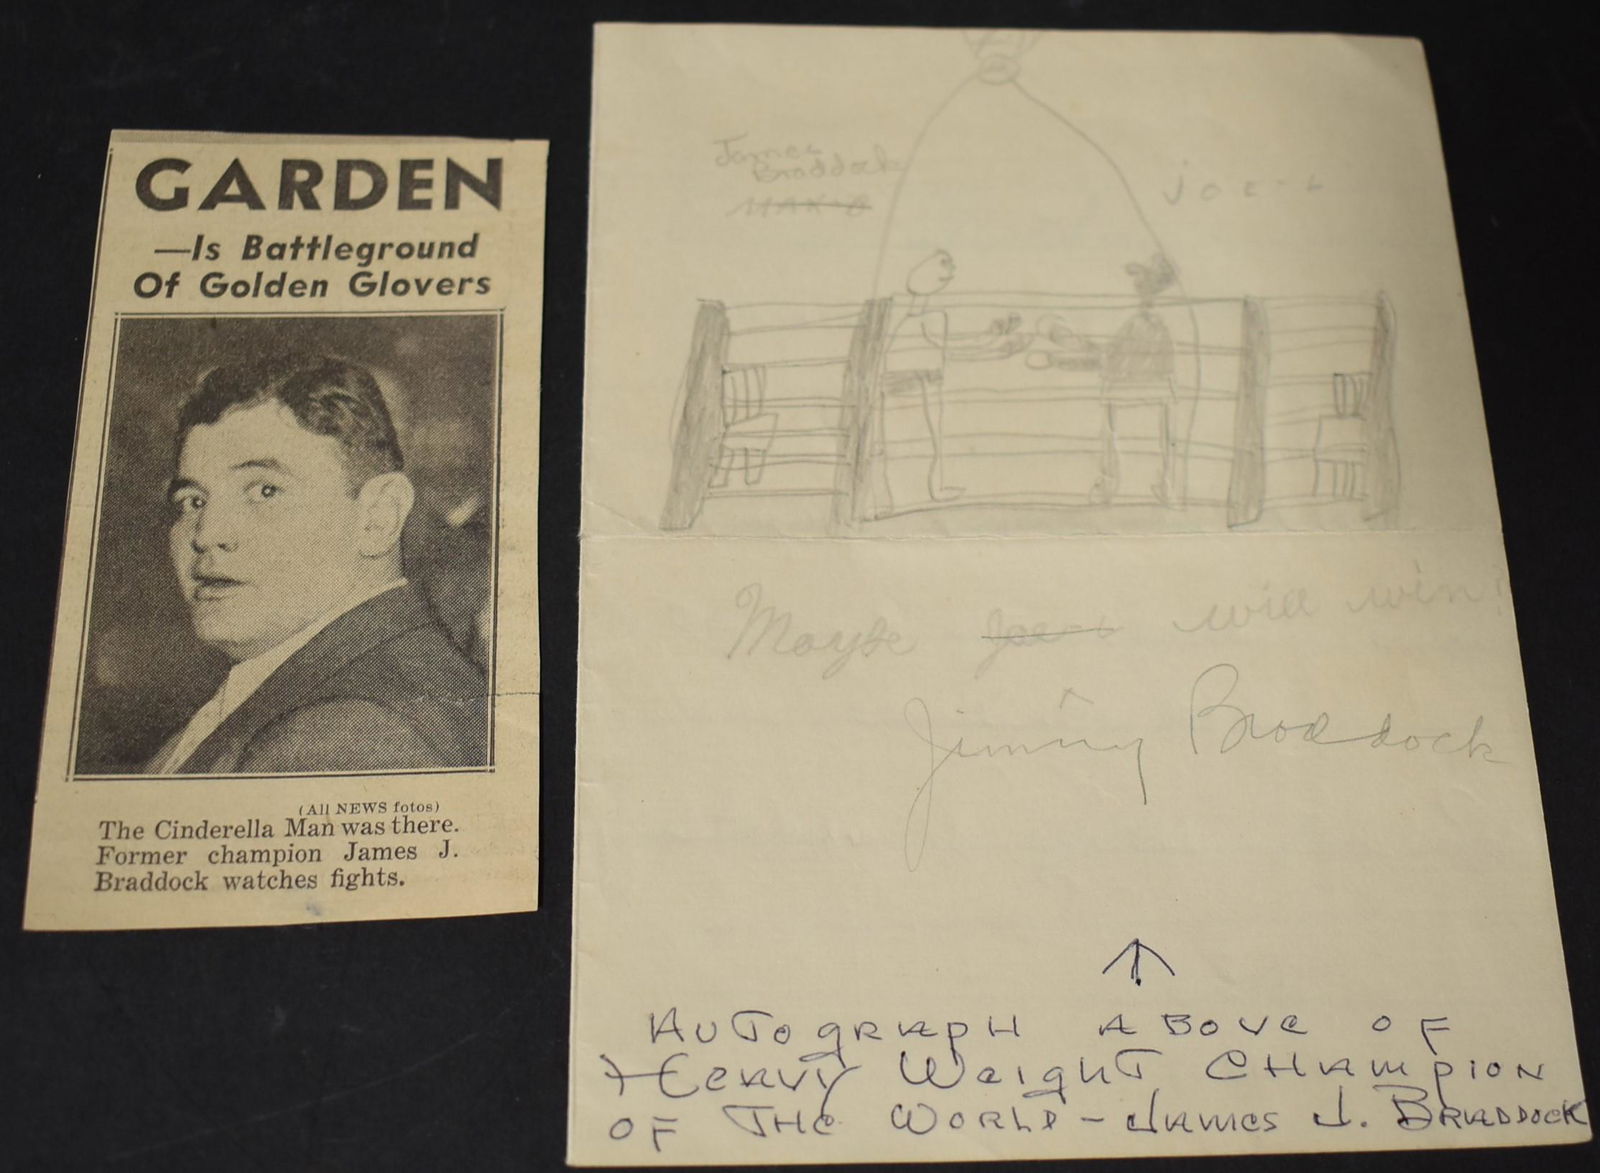 GARDEN
—Is Battleground
Of Golden Glovers
(All NEWS fotos)
The Cinderella Man was there.
Former champion James J.
Braddock watches fights.
James
Braddock
JOE-L
Maybe Joe-L will win!
Jimmy Braddock
AUTOGRAPH ABOVE OF
HEAVY WEIGHT CHAMPION
OF THE WORLD - JAMES J. BRADDOCK